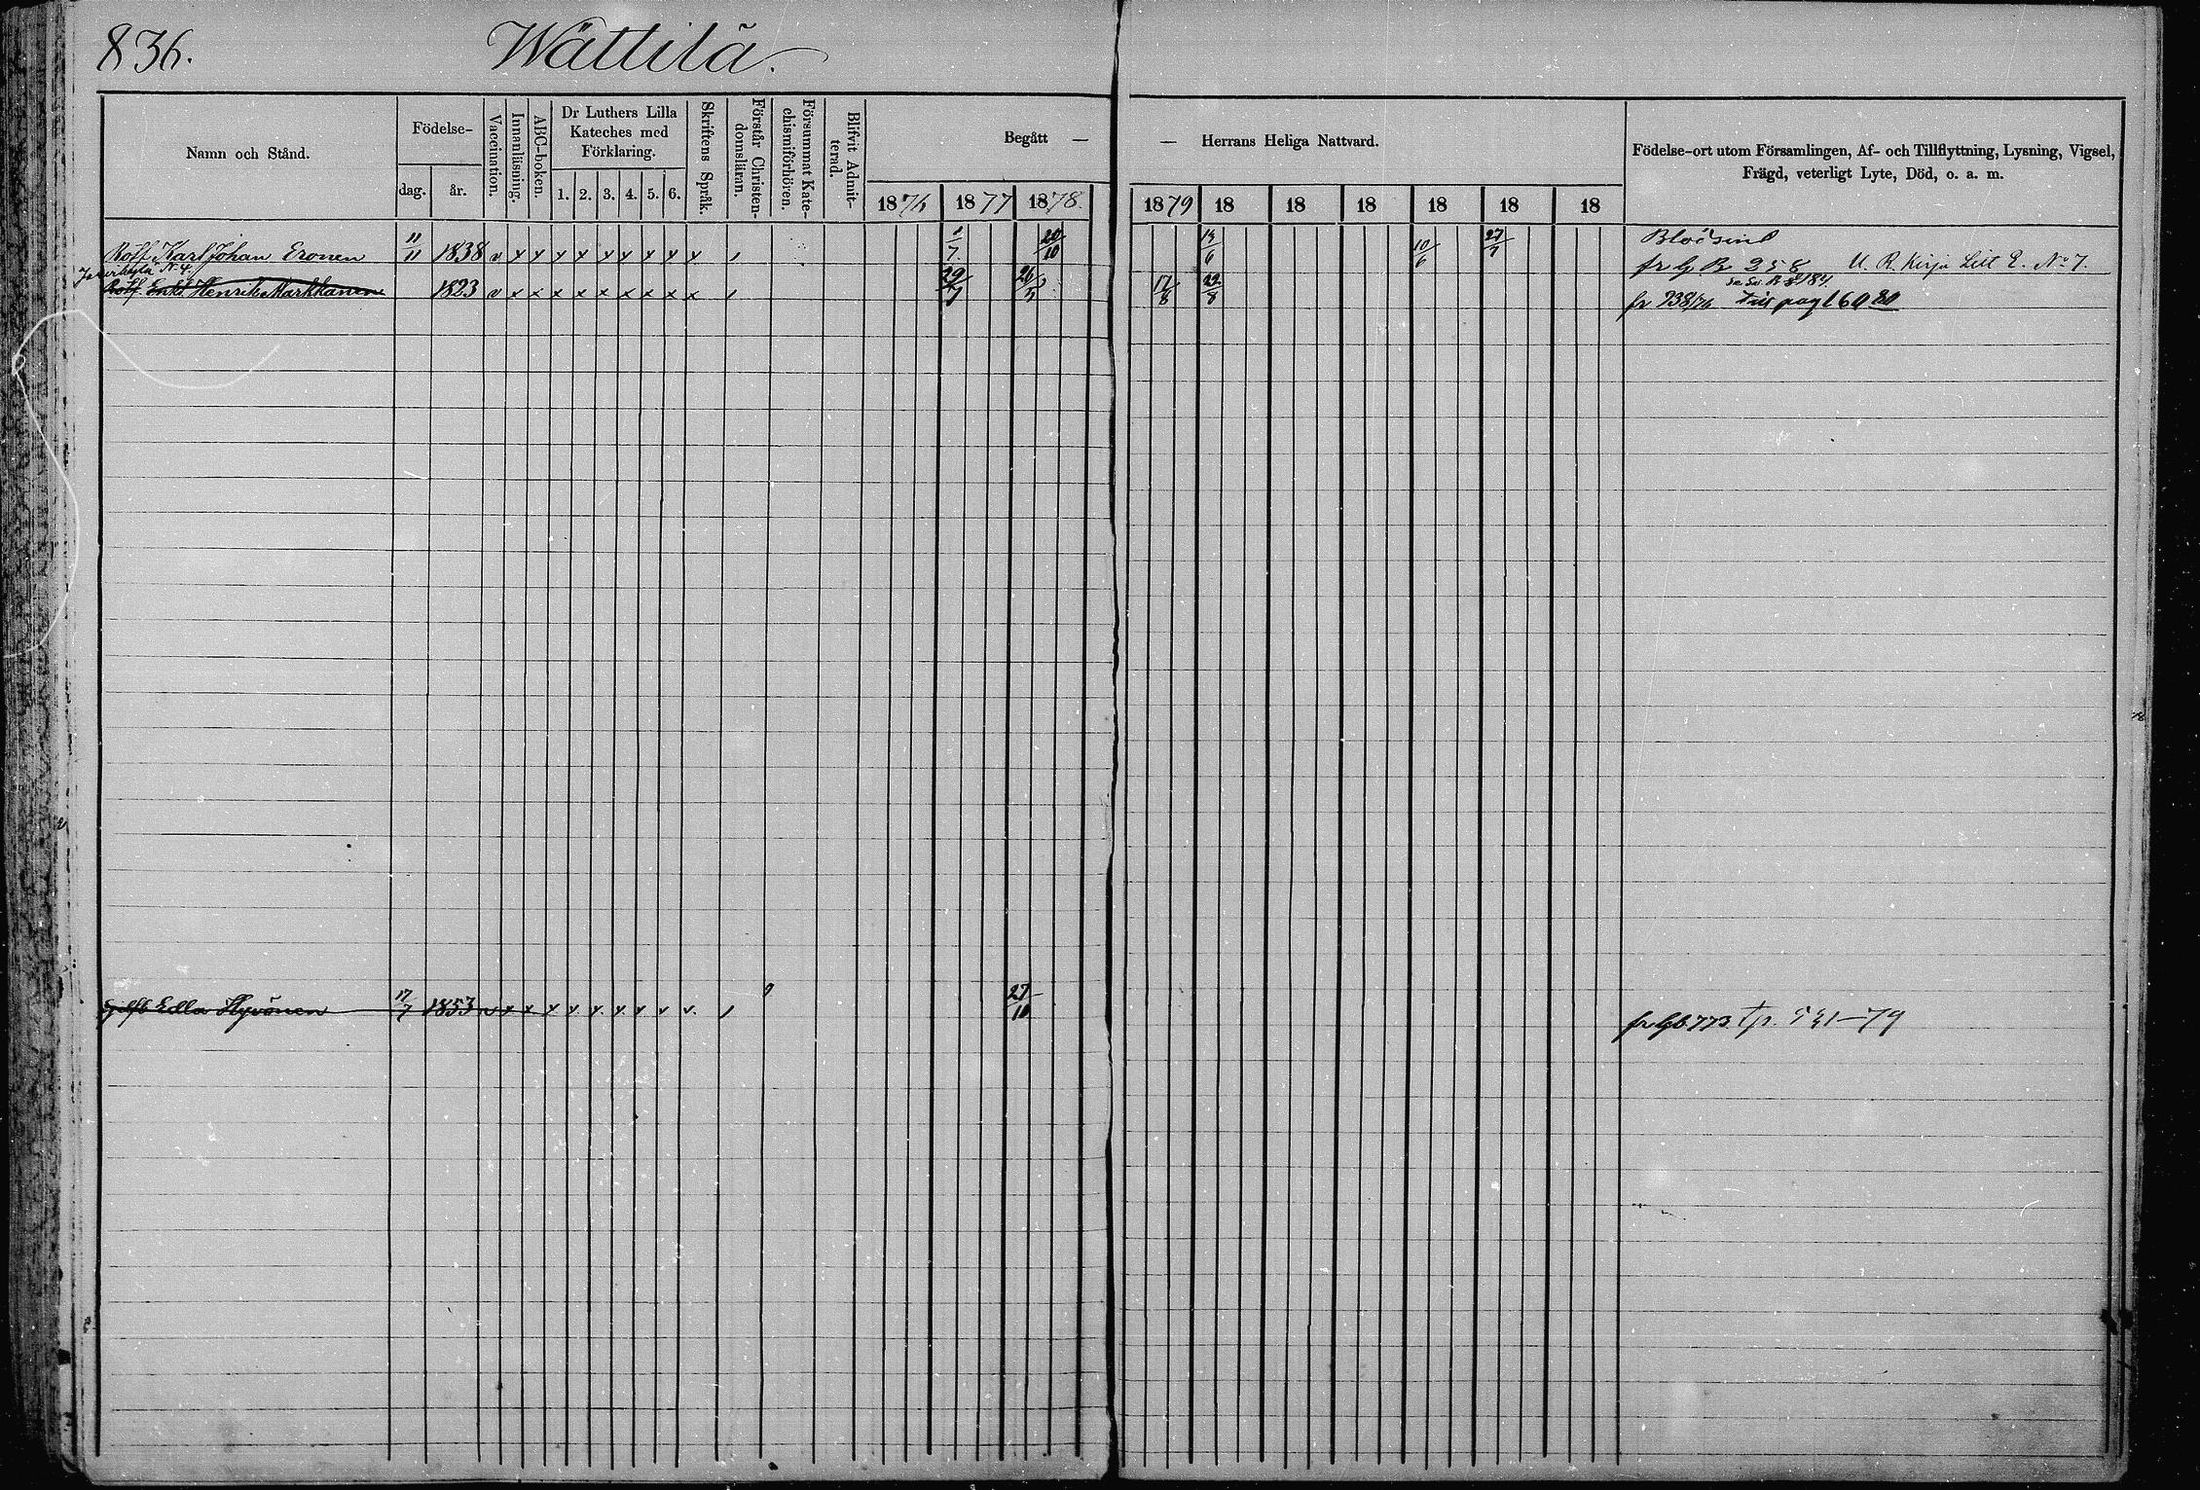 836. Wättilä.
Namn och Stånd.
Födelse-
dag. år.
Vaccination.
Innanläsning.
ABC-boken.
Dr Luthers Lilla
Kateches med
Förklaring.
1. 2. 3. 4. 5. 6.
Skriftens Språk.
Förstår Christen-
domsläran.
Försummat Kate-
chismiförhören.
Blifvit Admit-
terad.
Begått —
1876 1877 1878.
— Herrans Heliga Nattvard.
1879 18 18 18 18 18 18
Födelse-ort utom Församlingen, Af- och Tillflyttning, Lysning, Vigsel,
Frägd, veterligt Lyte, Död, o. a. m.
Karl Johan Eronen 11/11 1838 v x x x x x x x x x 1/7 20/10 10/6 27/7
fr G B 258 U. R. Kirja Litt E. No 7.
Enkl Henrik Markkanen 1823 v x x x x x x x x x 29/7 17/8 29/8
fr 738/76
Edla Hyvönen 17/7 1853 27/10
fr Gb 773 531–79